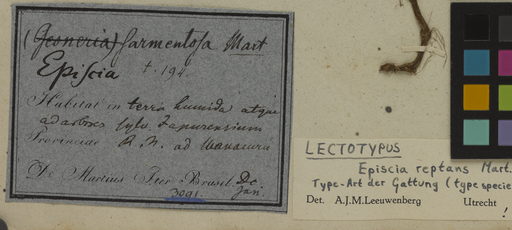 (Gesneria) sarmentosa Mart
Episcia t. 194
Habitat in terra humida atque
ad arbores sylv. Japurensium
Provinciae R. N. ad Manacuru
De Martius Iter Brasil. Dc
Jan.
3091.
LECTOTYPUS
Episcia reptans Mart.
Type-Art der Gattung (type specie
Det. A.J.M.Leeuwenberg Utrecht
!